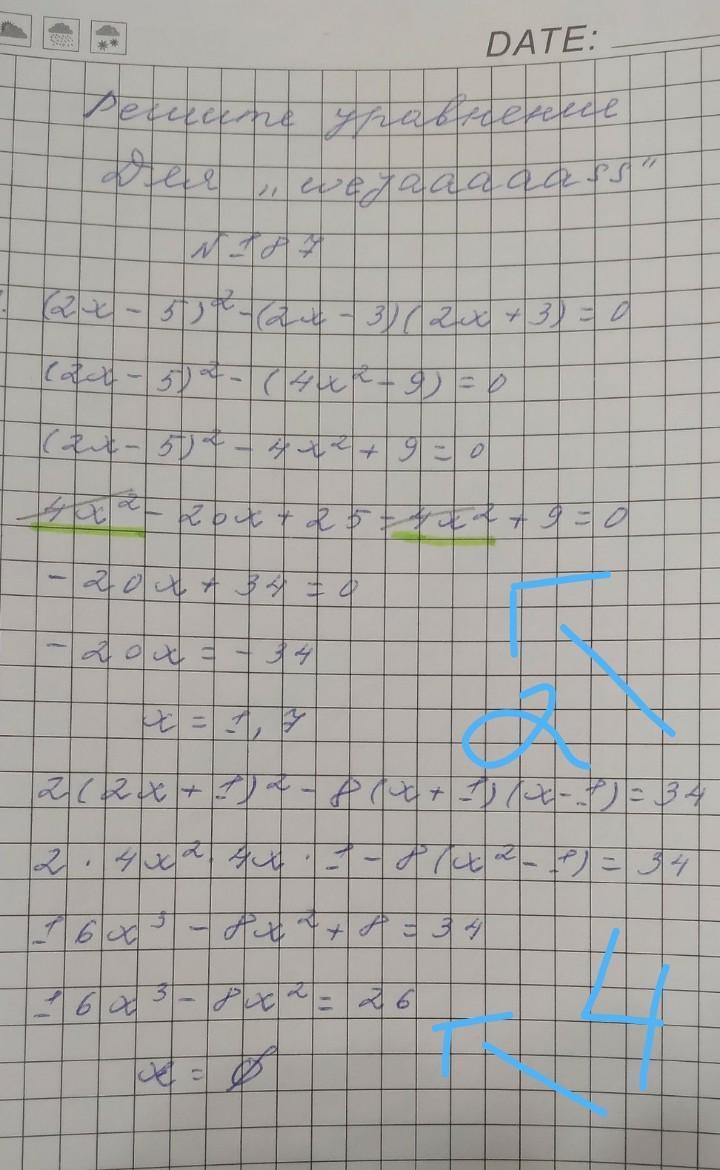 DATE:
Решите уравнение
Для „weyaaaaass”
№187
(2x - 5)² - (2x - 3)(2x + 3) = 0
(2x - 5)² - (4x² - 9) = 0
(2x - 5)² - 4x² + 9 = 0
4x² - 20x + 25 - 4x² + 9 = 0
- 20x + 34 = 0
- 20x = - 34
x = 1,7
2
2(2x + 1)² - 8(x + 1)(x - 1) = 34
2 · 4x² · 4x · 1 - 8(x² - 1) = 34
16x³ - 8x² + 8 = 34
16x³ - 8x² = 26
4
x = ∅